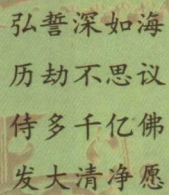 弘誓深如海
历劫不思议
侍多千亿佛
发大清净愿